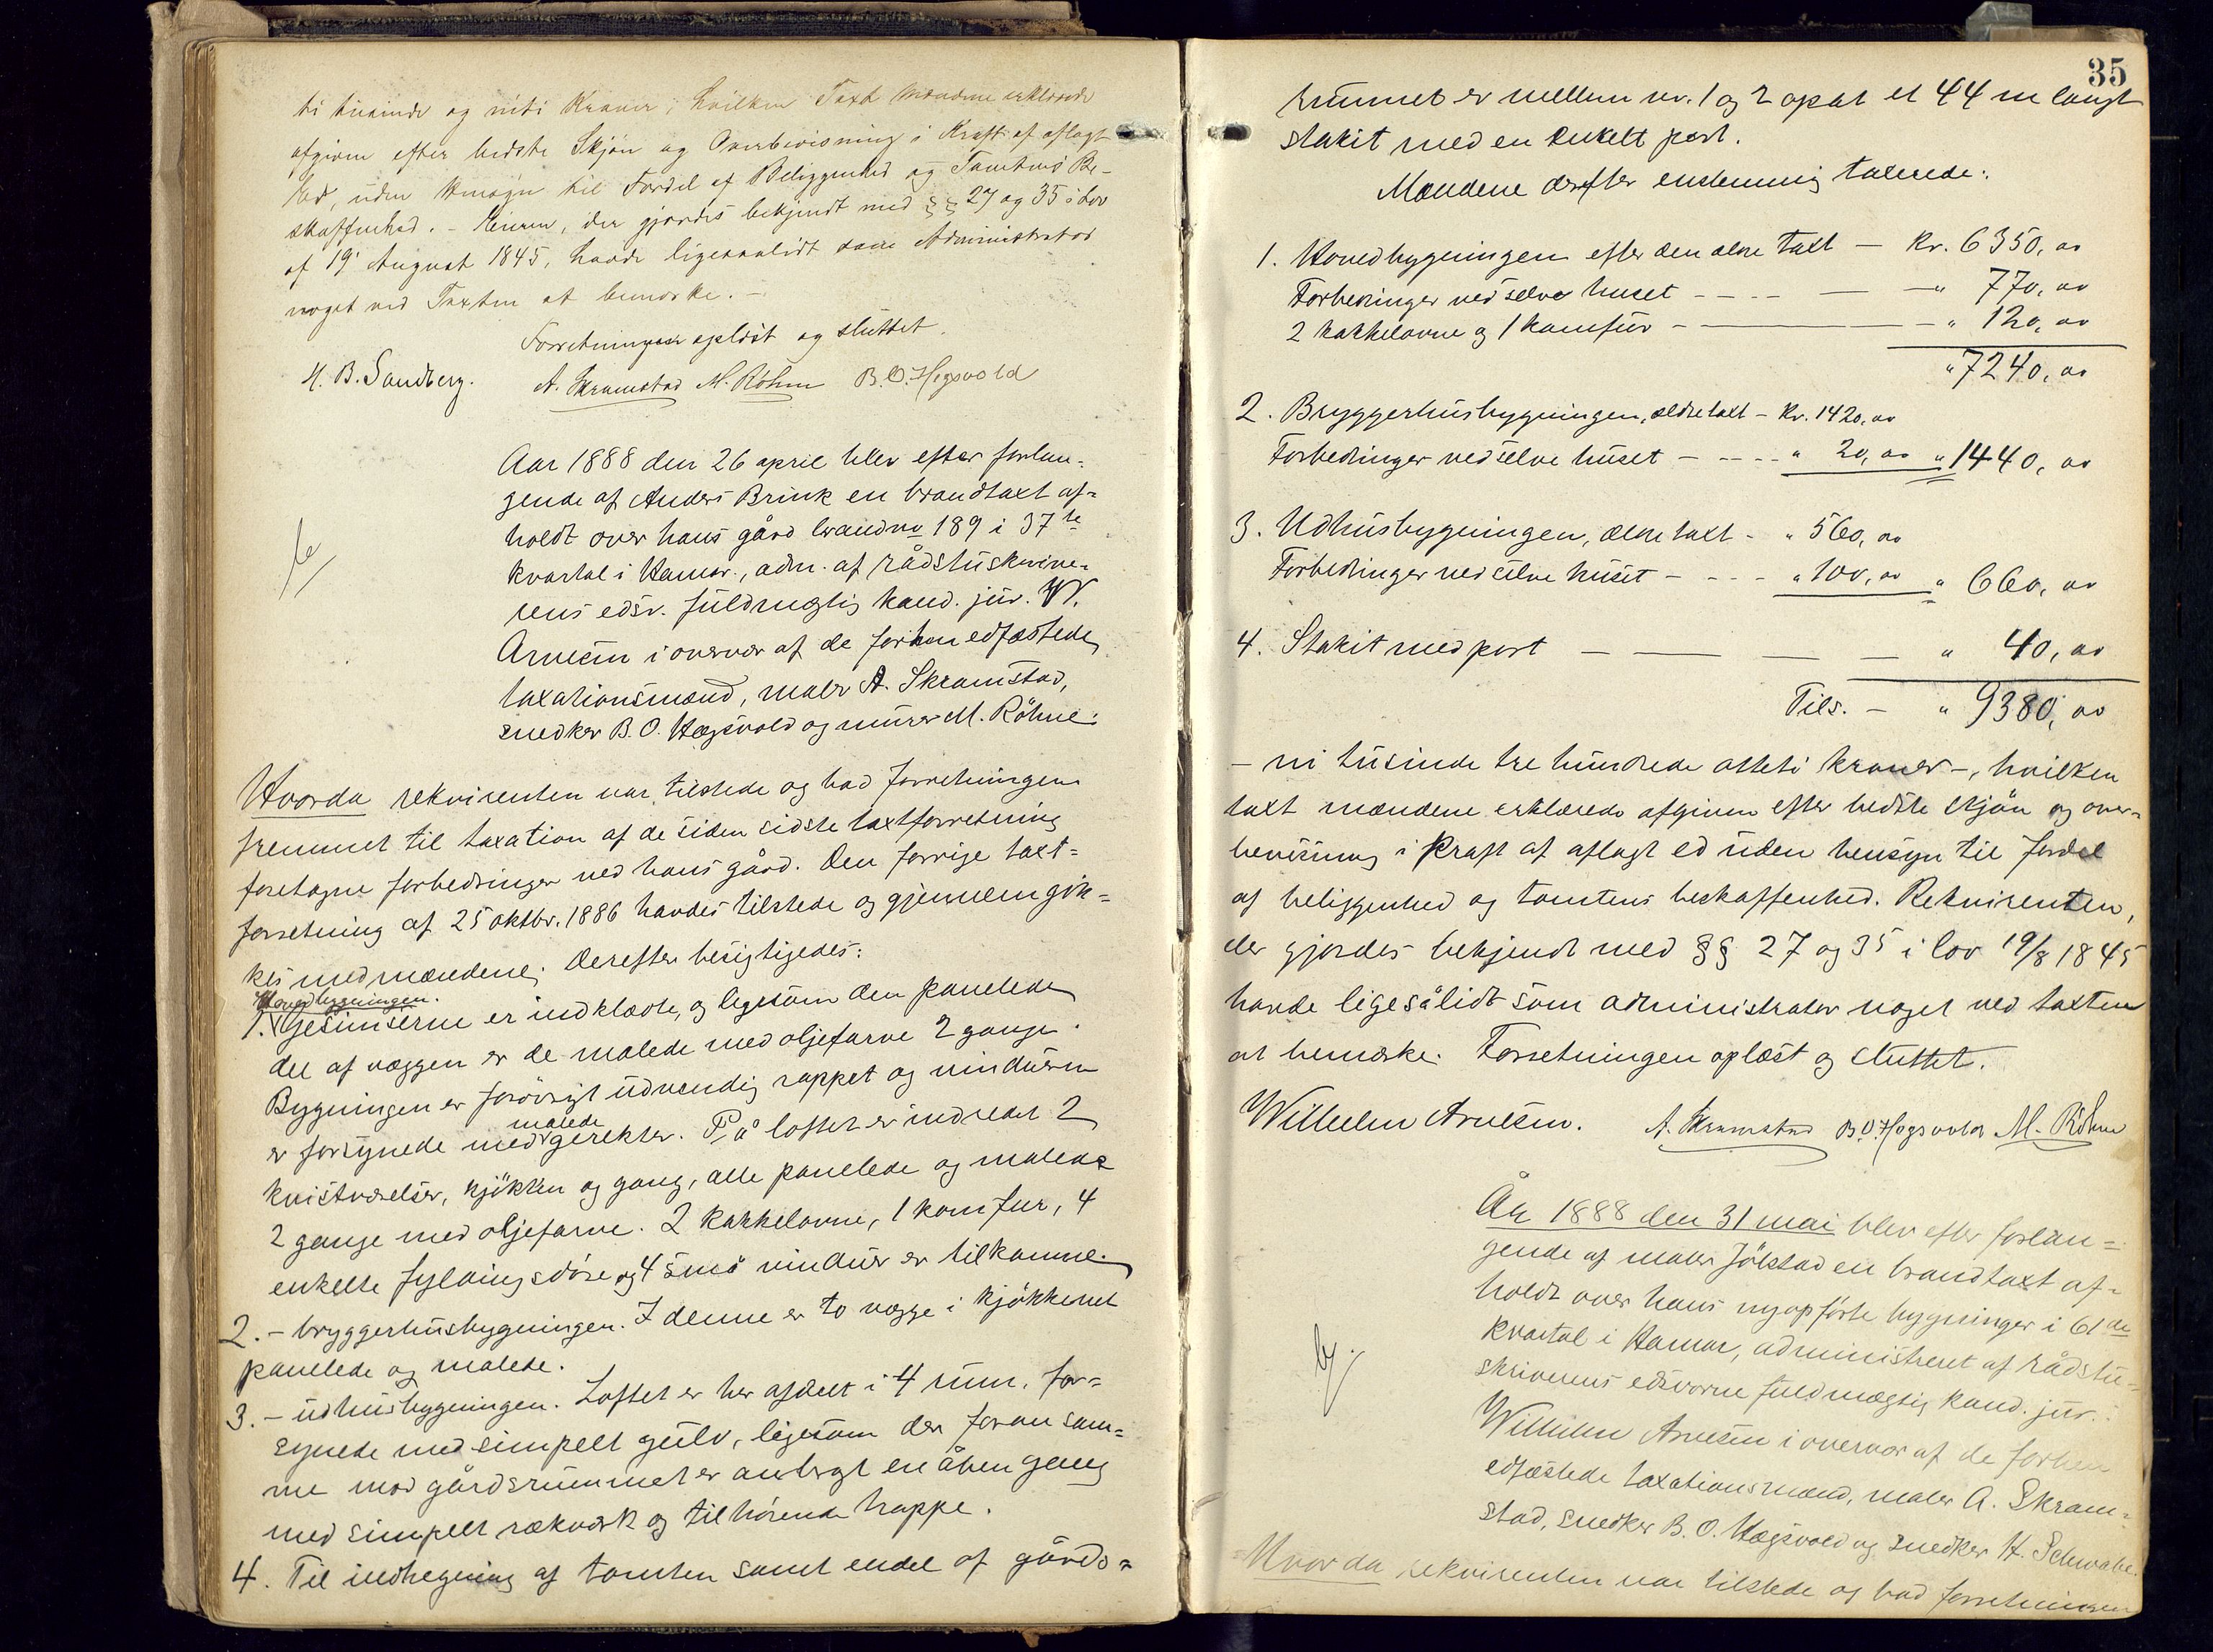 ti tusinde og niti Kroner; hvilken Taxt Mændene erklærede
afgiven efter bedste Skjön og Overbevisning i Kraft af aflagt
Ed, uden Hensyn til Fordel af Beliggenhed og Tomtens Be-
skaffenhed. - Eieren, der gjordes bekjendt med §§ 27 og 35 i Lov
af 19' August 1845, havde ligesaalidt som Administrator
noget ved Taxten at bemærke. -
Forretningen oplæst og sluttet.
H. B. Sandberg. A. Skramstad M. Röhne B. O. Hegsvold
Aar 1888 den 26 april blev efter forlan-
gende af Anders Brink en brandtaxt af-
holdt over hans gård brandno 189 i 37te
kvartal i Hamar, adm. af rådstuskrive-
rens edsv. fuldmægtig kand. jur. W.
Arnesen i overvær af de forhen edfæstede
taxationsmænd, maler A. Skramstad,
snedker B. O. Hegsvold og murer M. Röhne:
Hvorda rekvirenten var tilstede og bad forretningen
fremmet til taxation af de siden sidste taxtforretning
foretagne forbedringer ved hans gård. Den forrige taxt-
forretning af 25 oktbr. 1886 havdes tilstede og gjennemgik-
kes med mændene; derefter besigtigedes:
Hovedbygningen.
1. Gesimserne er indklædte, og ligesom den panelede
del af væggen er de malede med oljefarve 2 gange.
Bygningen er forövrigt udvendig rappet og vinduerne
malede
er forsynede med gerekter. På loftet er indredet 2
kvistværelser, kjökken og gang, alle panelede og malede
2 gange med oljefarve. 2 kakkelovne, 1 komfur, 4
enkelte fyldningsdöre og 4 små vinduer er tilkomne.
2. - bryggerhusbygningen. I denne er to vægge i kjökkenet
panelede og malede.
3. - udhusbygningen. Loftet er her afdelt i 4 rum, for-
synede med simpelt gulv, ligesom der foran sam-
me mod gårdsrummet er anbragt en åben gang
med simpelt rækværk og tilhörende trappe.
4. Til indhegning af tomten samt endel af gårds-
35
rummet er mellem nr. 1 og 2 opsat et 44 m langt
stakit med en enkelt port.
Mændene derefter enstemmig taxerede:
1. Hovedbygningen efter den ældre taxt - Kr. 6350, 00
Forbedringer ved selve huset - - - - " 770, 00
2 kakkelovne og 1 komfur - - - " 120, 00
" 7240, 00
2. Bryggerhusbygningen, ældre taxt - Kr. 1420, 00
Forbedringer ved selve huset - - - - " 20, 00 " 1440, 00
3. Udhusbygningen, ældre taxt - " 560, 00
Forbedringer ved selve huset - - - - " 100, 00 " 660, 00
4. Stakit med port - - - - " 40, 00
Tils. - " 9380, 00
- ni tusinde tre hundrede otteti kroner -, hvilken
taxt mændene erklærede afgiven efter bedste skjön og over-
bevisning i kraft af aflagt ed uden hensyn til fordel
af beliggenhed og tomtens beskaffenhed. Rekvirenten,
der gjordes bekjendt med §§ 27 og 35 i lov 19/8 1845
havde ligesålidt som administrator noget ved taxten
at bemærke. Forretningen oplæst og sluttet.
Wilhelm Arnesen. A. Skramstad B. O. Hegsvold M. Röhne
År 1888 den 31 mai blev efter forlan-
gende af maler Jölstad en brandtaxt af-
holdt over hans nyopförte bygninger i 61de
kvartal i Hamar, administreret af rådstu-
skriverens edsvorne fuldmægtig kand. jur.
Wilhelm Arnesen i overvær af de forhen
edfæstede taxationsmænd, maler A. Skram-
stad, snedker B. O. Hægsvold og snedker H. Schwabe.
Hvorda rekvirenten var tilstede og bad forretningen